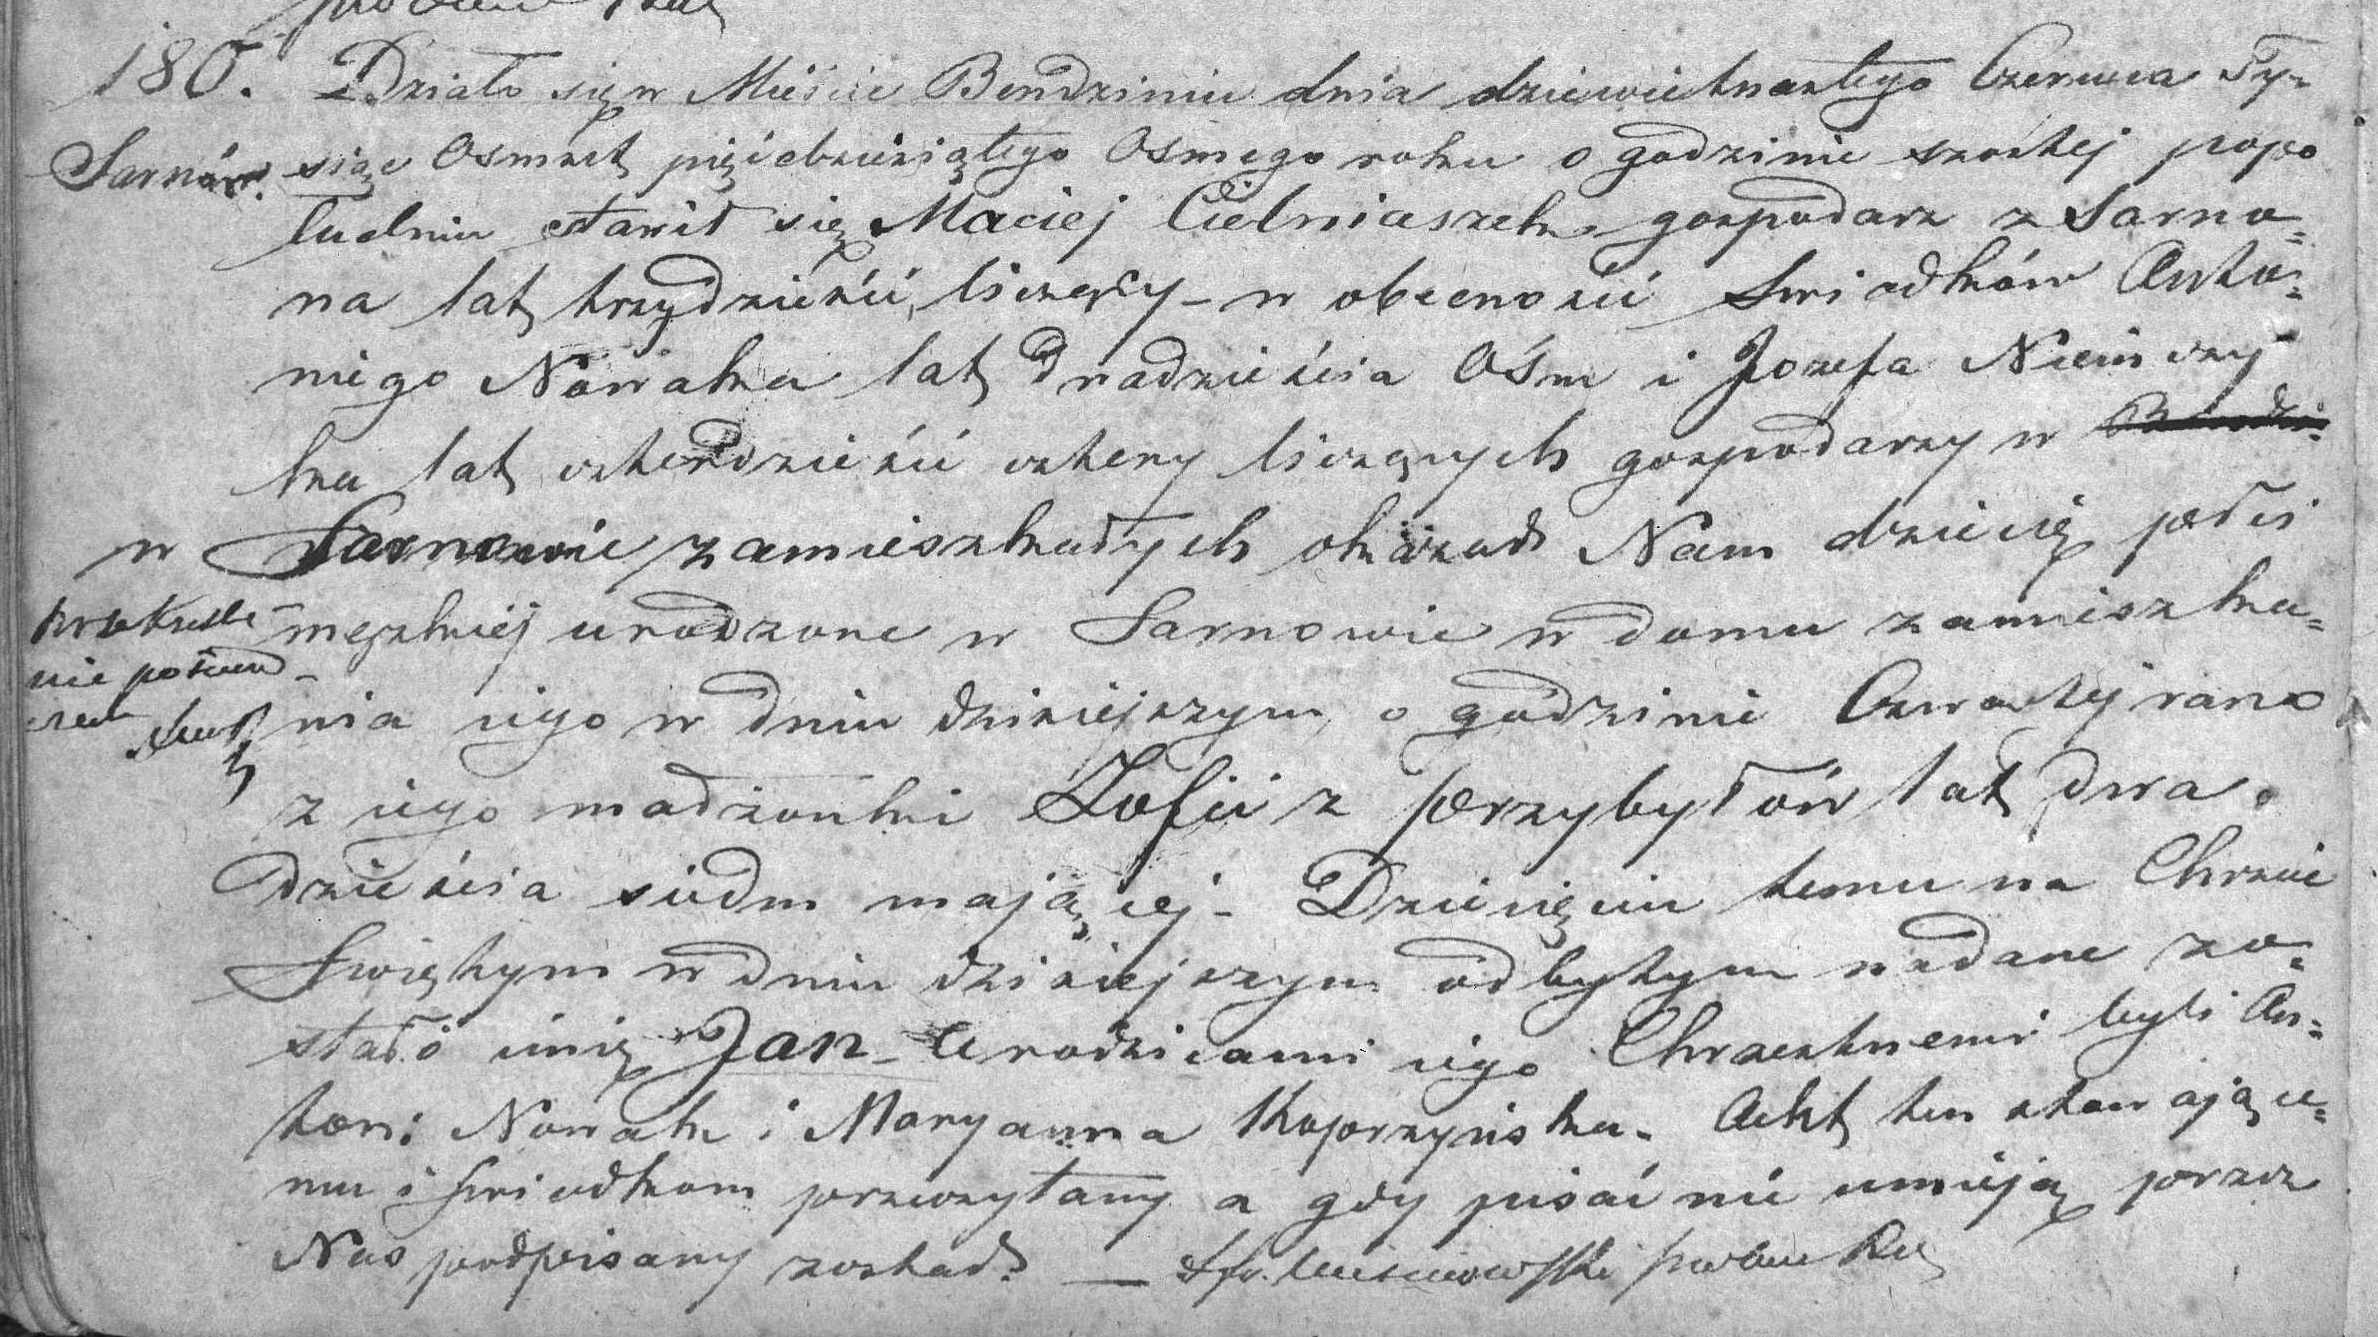 180. Działo się w Mieście Bendzinie dnia dziewietnastego Czerwca Ty-
Sarnów. siąc Osmset pięćdziesiątego Osmego roku o godzinie szóstej popo
łudniu stawił się Maciej Cielniaszek gospodarz z Sarno=
na lat trzydzieści liczący – w obecności Swiadków Anto=
niego Nowaka lat Dwadzieścia Ośm i Jozefa Niemczy
ka lat czterdzieści cztery liczących gospodarzy w
w Sarnowie zamieszkałych okazał Nam dziecię płci
męzkiej urodzone w Sarnowie w domu zamieszka=
nia iego w dniu dzisiejszym o godzinie Czwartej rano
z iego małżonki Zofii z Przybyłów lat dwa=
dzieścia siedm mającej – Dziecięciu temu na Chrzcie
Swiętym w dniu dzisiejszym odbytym nadane zo=
stało imię Jan – a rodzicami iego Chrzestnemi byli An=
toni Nowak i Maryanna Koprzyńska. Akt ten stawające=
mu i Swiadkom przeczytany a gdy pisać nie umieją przez
Nas podpisany został. —
przekreśle
nie poświad